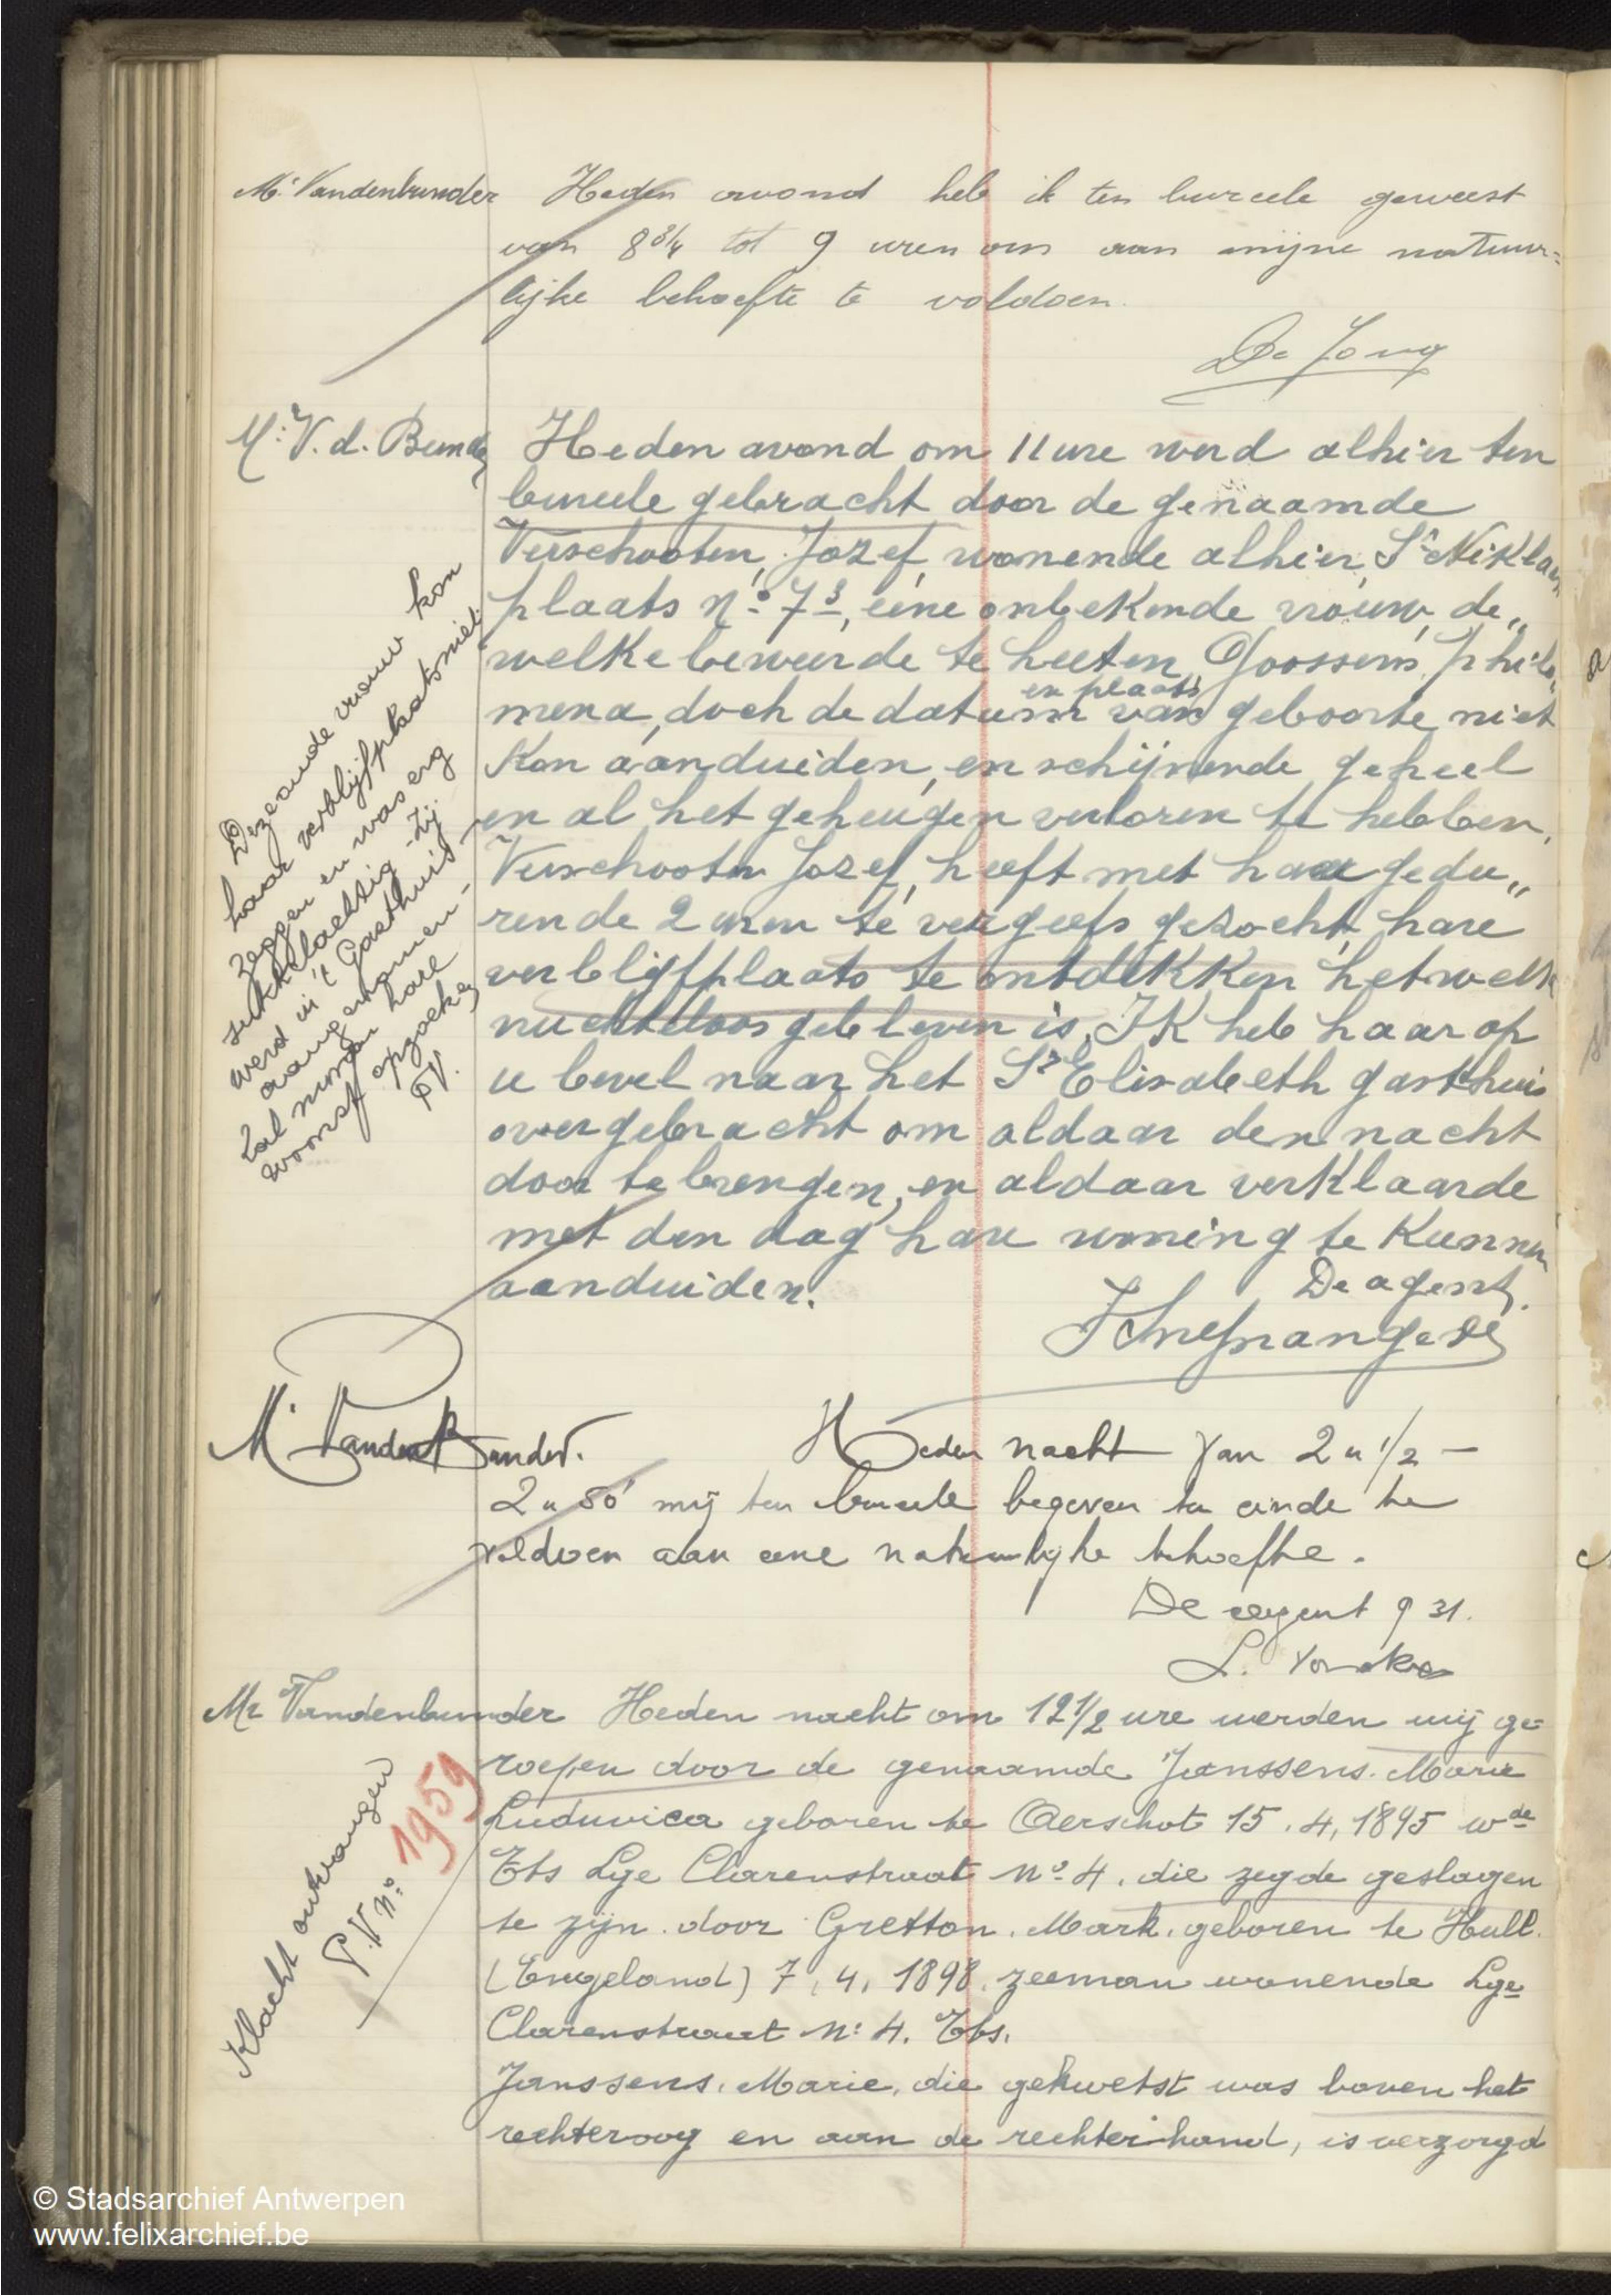 Mr Vandenbunder Heden avond heb ik ten bureele geweest
van 8 3/4 tot 9 uren om aan mijne natuur=
lijke behoefte te voldoen.
De Jong
Mr V. d. Bunder
Heden avond om 11 ure werd alhier ten
bureele gebracht door de genaamde
Verschooten, Jozef, wonende alhier, St Niklaas
plaats No 7³, eene onbekende vrouw, de„
welke beweerde te heeten Goossens, Philo„
mena, doch de datum en plaats van geboorte niet
kon aanduiden, en schijnende geheel
en al het geheugen verloren te hebben.
Verschooten Jozef, heeft met haar gedu„
rende 2 uren te vergeefs gezocht, hare
verblijfplaats te ontdekken, hetwelk
nutteloos gebleven is. Ik heb haar op
u bevel naar het St Elisabeth gasthuis
overgebracht om aldaar den nacht
door te brengen, en aldaar verklaarde
met den dag hare woning te kunnen
aanduiden.
De agent.
Deze oude vrouw kon
haar verblijfplaats niet
zeggen en was erg
sukkelachtig - Zij
werd in 't Gasthuis
aangenomen -
Zal morgen hare
woonst opzoeken
Mr VandenBunder.
Heden nacht van 2 u 1/2 -
2 u 50' mij ten bureele begeven ten einde te
voldoen aan eene natuurlijke behoefte.
De agent 931.
L. Vonckx
Mr Vandenbunder Heden nacht om 12 1/2 ure werden wij ge=
roepen door de genaamde Janssens. Marie
Luduvica geboren te Aerschot 15.4.1895 wde
Tbs Lge Clarenstraat No 4. die zegde geslagen
te zijn door Gretton. Mark. geboren te Hull.
(Engeland) 7.4.1898. zeeman wonende Lge
Clarenstraat No 4. Tbs.
Janssens. Marie, die gekwetst was boven het
rechteroog en aan de rechterhand, is verzorgd
Klacht ontvangen
P.V. No 1959
© Stadsarchief Antwerpen
www.felixarchief.be